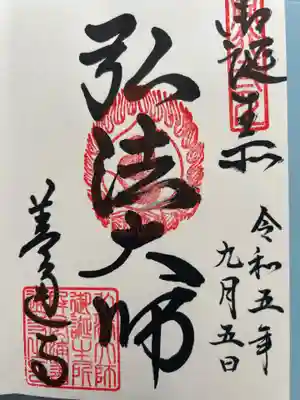 御誕生所
令和五年
九月五日
弘法大師
善通寺
弘法大師
御誕生所